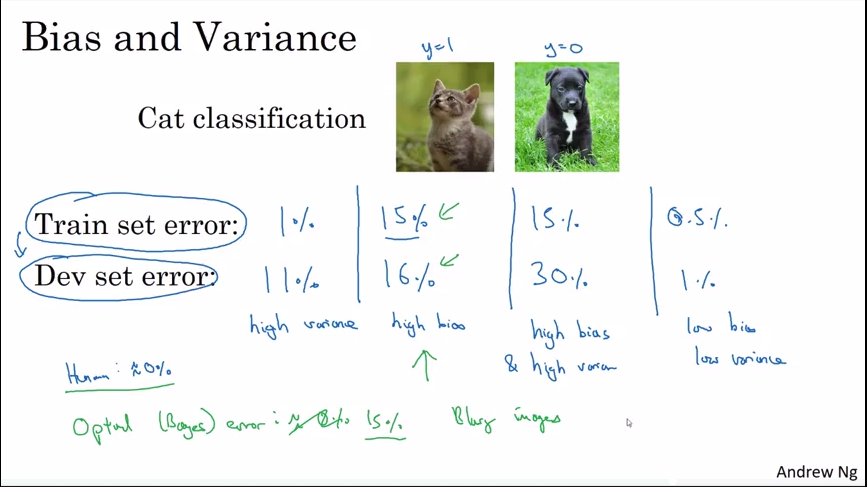 Bias and Variance
y=1 y=0
Cat classification
Train set error: 1% 15% 15% 0.5%
Dev set error: 11% 16% 30% 1%
high variance high bias high bias low bias
& high varian low variance
Human: ≈0%
Optml (Bayes) error: ≈ 0% 15% Blury images
Andrew Ng